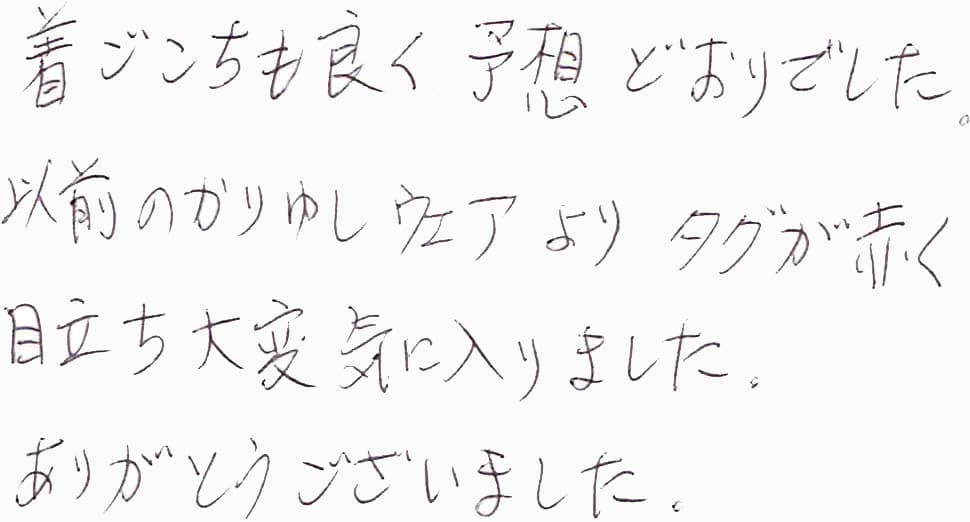 着ごこちも良く予想どおりでした。
以前のかりゆしウェアよりタグが赤く
目立ち大変気に入りました。
ありがとうございました。